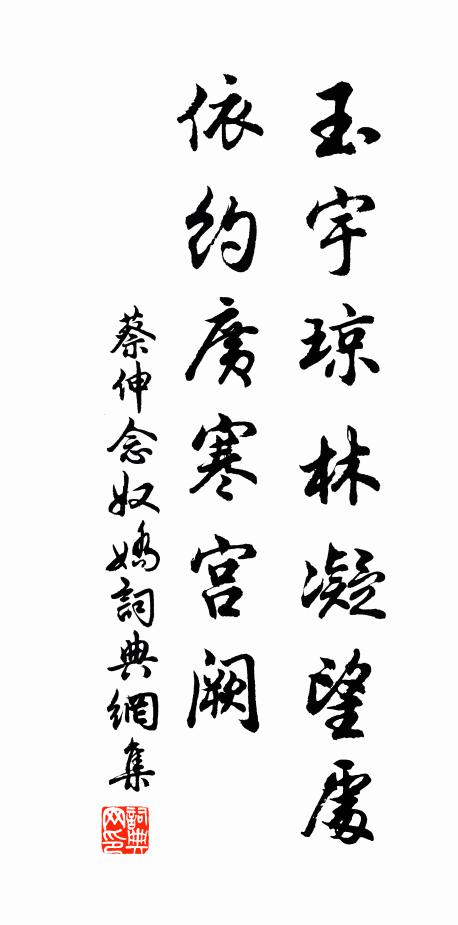 玉宇琼林凝望處
依约廣寒宫阙
蔡伸念奴嬌詞典網集
詞典网印